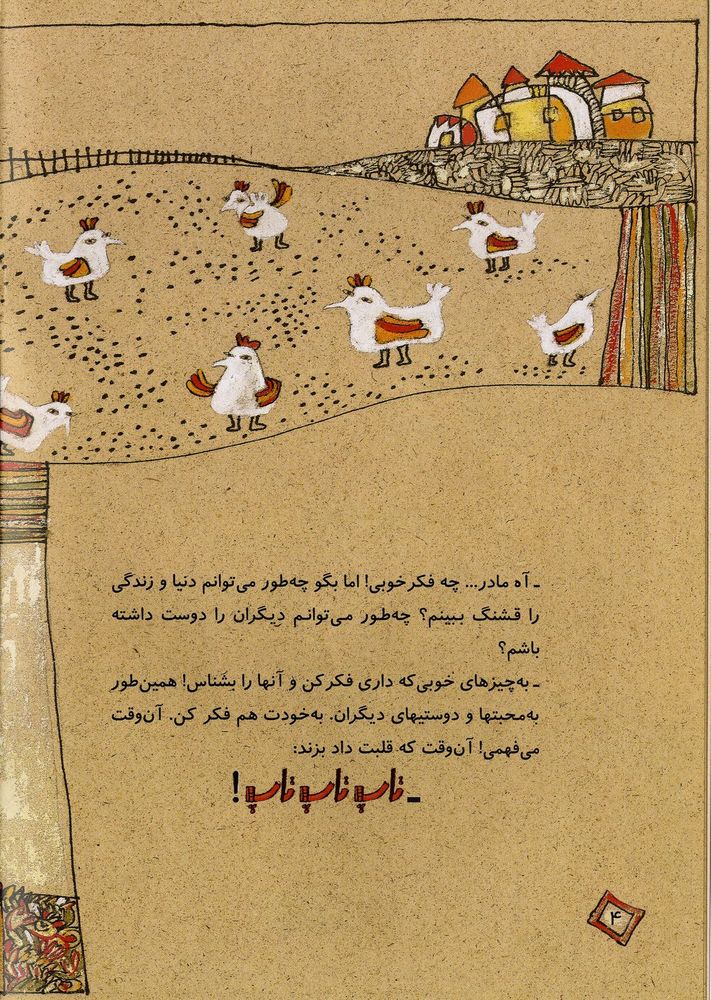 ـ آه مادر... چه فکر خوبی! اما بگو چه‌طور می‌توانم دنیا و زندگی
را قشنگ ببینم؟ چه‌طور می‌توانم دیگران را دوست داشته
باشم؟
ـ به‌چیزهای خوبی‌که داری فکر کن و آنها را بشناس! همین‌طور
به‌محبتها و دوستیهای دیگران. به‌خودت هم فکر کن. آن‌وقت
می‌فهمی! آن‌وقت که قلبت داد بزند:
ـ قاپ قاپ قاپ!
۴